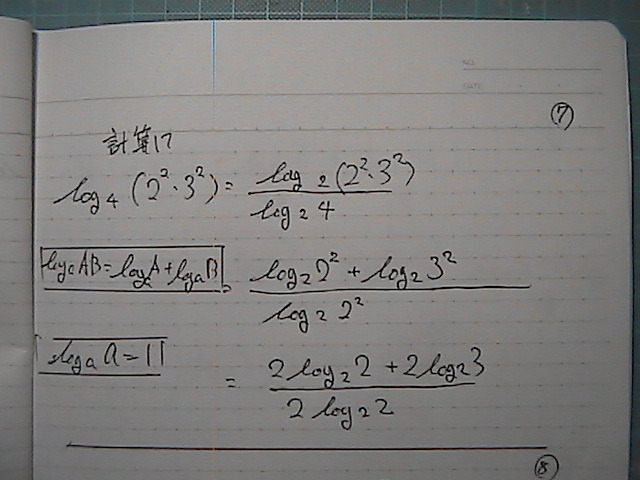 NO.
DATE
⑦
計算17
log₄(2²·3²) = log₂(2²·3²) / log₂4
logₐAB=logₐA+logₐB = log₂2² + log₂3² / log₂2²
logₐa=1
= 2log₂2 + 2log₂3 / 2log₂2
⑧